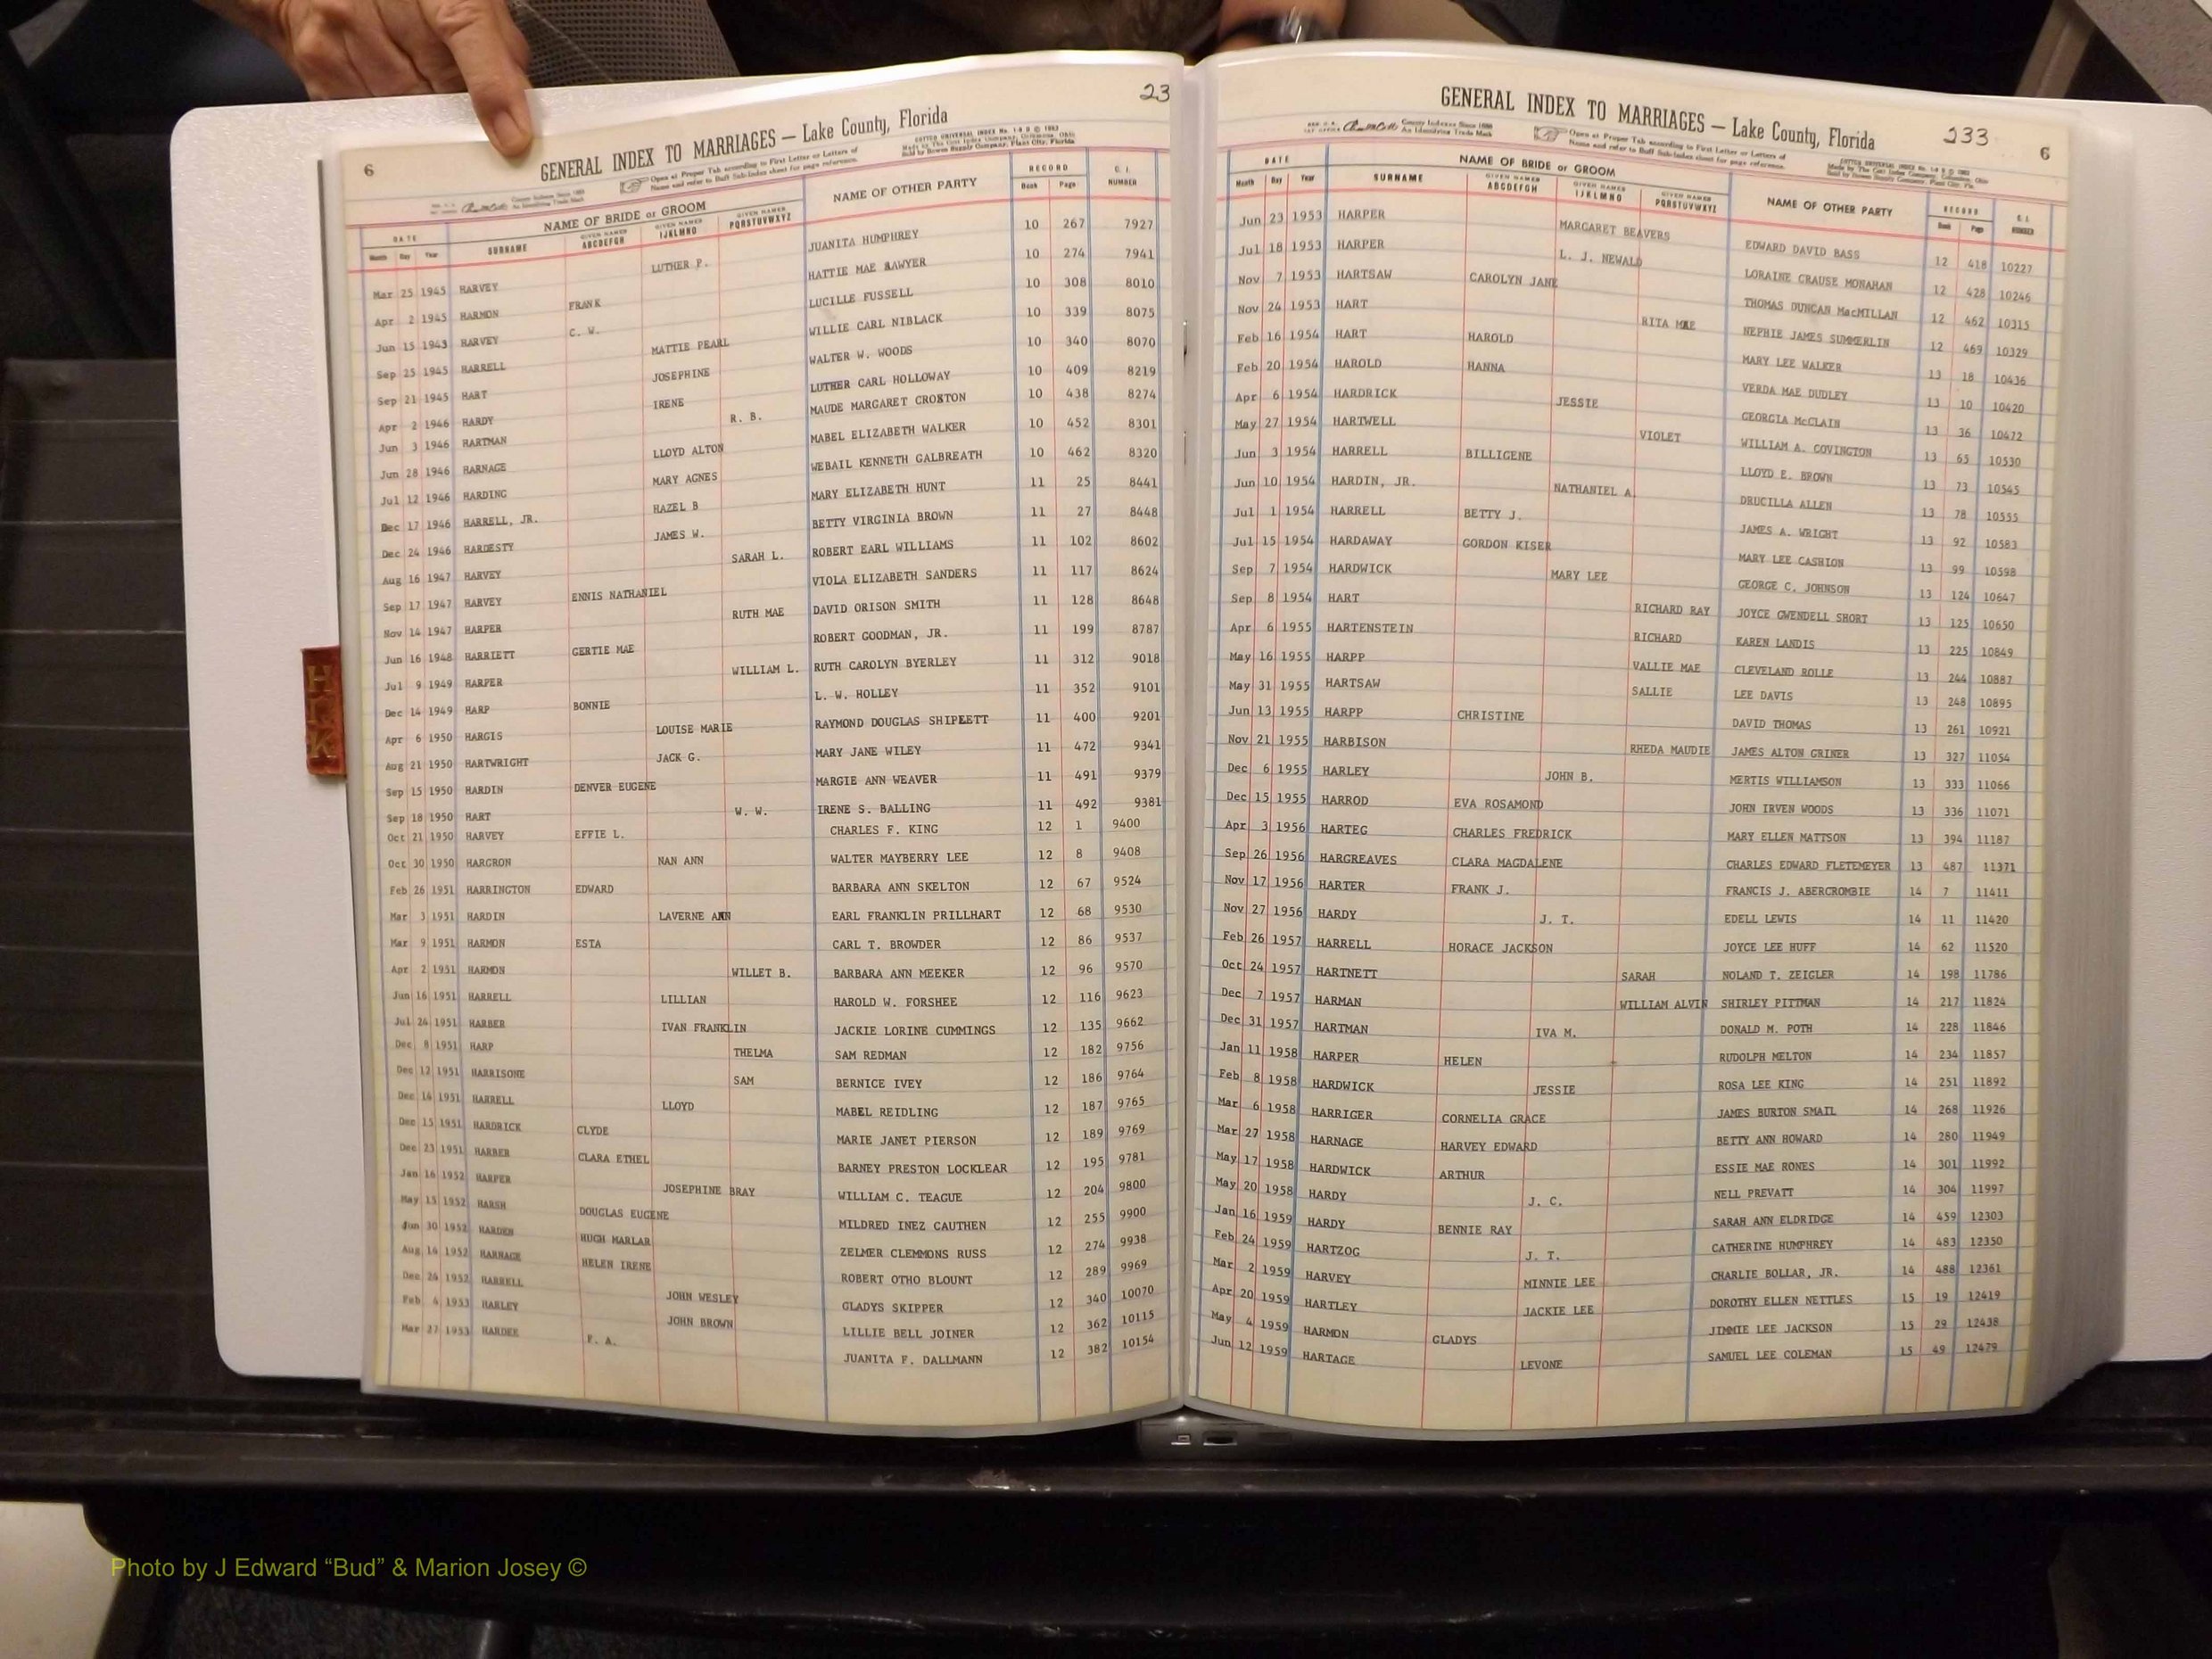 23
6 GENERAL INDEX TO MARRIAGES — Lake County, Florida
Open at Proper Tab according to First Letter or Letters of
Name and refer to Buff Sub-Index sheet for page reference.
DATE NAME OF BRIDE or GROOM NAME OF OTHER PARTY RECORD C. I. NUMBER
Month Day Year SURNAME GIVEN NAMES ABCDEFGH GIVEN NAMES IJKLMNO GIVEN NAMES PQRSTUVWXYZ Book Page
Mar 25 1945 HARVEY LUTHER P. JUANITA HUMPHREY 10 267 7927
Apr 2 1945 HARMON FRANK HATTIE MAE SAWYER 10 274 7941
Jun 15 1943 HARVEY C. W. LUCILLE FUSSELL 10 308 8010
Sep 25 1945 HARRELL MATTIE PEARL WILLIE CARL NIBLACK 10 339 8075
Sep 21 1945 HART JOSEPHINE WALTER W. WOODS 10 340 8070
Apr 2 1946 HARDY IRENE LUTHER CARL HOLLOWAY 10 409 8219
Jun 3 1946 HARTMAN R. B. MAUDE MARGARET CROXTON 10 438 8274
Jun 28 1946 HARNAGE LLOYD ALTON MABEL ELIZABETH WALKER 10 452 8301
Jul 12 1946 HARDING MARY AGNES WEBAIL KENNETH GALBREATH 10 462 8320
Dec 17 1946 HARRELL, JR. HAZEL B MARY ELIZABETH HUNT 11 25 8441
Dec 24 1946 HARDESTY JAMES W. BETTY VIRGINIA BROWN 11 27 8448
Aug 16 1947 HARVEY SARAH L. ROBERT EARL WILLIAMS 11 102 8602
Sep 17 1947 HARVEY ENNIS NATHANIEL VIOLA ELIZABETH SANDERS 11 117 8624
Nov 14 1947 HARPER RUTH MAE DAVID ORISON SMITH 11 128 8648
Jun 16 1948 HARRIETT GERTIE MAE ROBERT GOODMAN, JR. 11 199 8787
Jul 9 1949 HARPER WILLIAM L. RUTH CAROLYN BYERLEY 11 312 9018
Dec 14 1949 HARP BONNIE L. W. HOLLEY 11 352 9101
Apr 6 1950 HARGIS LOUISE MARIE RAYMOND DOUGLAS SHIPLETT 11 400 9201
Aug 21 1950 HARTWRIGHT JACK G. MARY JANE WILEY 11 472 9341
Sep 15 1950 HARDIN DENVER EUGENE MARGIE ANN WEAVER 11 491 9379
Sep 18 1950 HART W. W. IRENE S. BALLING 11 492 9381
Oct 21 1950 HARVEY EFFIE L. CHARLES F. KING 12 1 9400
Oct 30 1950 HARGRON NAN ANN WALTER MAYBERRY LEE 12 8 9408
Feb 26 1951 HARRINGTON EDWARD BARBARA ANN SKELTON 12 67 9524
Mar 3 1951 HARDIN LAVERNE ANN EARL FRANKLIN PRILLHART 12 68 9530
Mar 9 1951 HARMON ESTA CARL T. BROWDER 12 86 9537
Apr 2 1951 HARMON WILLET B. BARBARA ANN MEEKER 12 96 9570
Jun 16 1951 HARRELL LILLIAN HAROLD W. FORSHEE 12 116 9623
Jul 24 1951 HARBER IVAN FRANKLIN JACKIE LORINE CUMMINGS 12 135 9662
Dec 8 1951 HARP THELMA SAM REDMAN 12 182 9756
Dec 12 1951 HARRISONE SAM BERNICE IVEY 12 186 9764
Dec 14 1951 HARRELL LLOYD MABEL REIDLING 12 187 9765
Dec 15 1951 HARDRICK CLYDE MARIE JANET PIERSON 12 189 9769
Dec 23 1951 HARBER CLARA ETHEL BARNEY PRESTON LOCKLEAR 12 195 9781
Jan 16 1952 HARPER JOSEPHINE BRAY WILLIAM C. TEAGUE 12 204 9800
May 15 1952 HARSH DOUGLAS EUGENE MILDRED INEZ CAUTHEN 12 255 9900
Jun 30 1952 HARDEN HUGH MARLAR ZELMER CLEMMONS RUSS 12 274 9938
Aug 14 1952 HARNAGE HELEN IRENE ROBERT OTHO BLOUNT 12 289 9969
Dec 24 1952 HARRELL JOHN WESLEY GLADYS SKIPPER 12 340 10070
Feb 4 1953 HARLEY JOHN BROWN LILLIE BELL JOINER 12 362 10115
Mar 27 1953 HARDEE F. A. JUANITA F. DALLMANN 12 382 10154
HIJK
GENERAL INDEX TO MARRIAGES — Lake County, Florida 233 6
Open at Proper Tab according to First Letter or Letters of
Name and refer to Buff Sub-Index sheet for page reference.
DATE NAME OF BRIDE or GROOM NAME OF OTHER PARTY RECORD C. I. NUMBER
Month Day Year SURNAME GIVEN NAMES ABCDEFGH GIVEN NAMES IJKLMNO GIVEN NAMES PQRSTUVWXYZ Book Page
Jun 23 1953 HARPER MARGARET BEAVERS EDWARD DAVID BASS 12 418 10227
Jul 18 1953 HARPER L. J. NEWALD LORAINE CRAUSE MONAHAN 12 428 10246
Nov 7 1953 HARTSAW CAROLYN JANE THOMAS DUNCAN MacMILLAN 12 462 10315
Nov 24 1953 HART RITA MAE NEPHIE JAMES SUMMERLIN 12 469 10329
Feb 16 1954 HART HAROLD MARY LEE WALKER 13 18 10436
Feb 20 1954 HAROLD HANNA VERDA MAE DUDLEY 13 10 10420
Apr 6 1954 HARDRICK JESSIE GEORGIA McCLAIN 13 36 10472
May 27 1954 HARTWELL VIOLET WILLIAM A. COVINGTON 13 65 10530
Jun 3 1954 HARRELL BILLIGENE LLOYD E. BROWN 13 73 10545
Jun 10 1954 HARDIN, JR. NATHANIEL A. DRUCILLA ALLEN 13 78 10555
Jul 1 1954 HARRELL BETTY J. JAMES A. WRIGHT 13 92 10583
Jul 15 1954 HARDAWAY GORDON KISER MARY LEE CASHION 13 99 10598
Sep 7 1954 HARDWICK MARY LEE GEORGE C. JOHNSON 13 124 10647
Sep 8 1954 HART RICHARD RAY JOYCE GWENDELL SHORT 13 125 10650
Apr 6 1955 HARTENSTEIN RICHARD KAREN LANDIS 13 225 10849
May 16 1955 HARPP VALLIE MAE CLEVELAND ROLLE 13 244 10887
May 31 1955 HARTSAW SALLIE LEE DAVIS 13 248 10895
Jun 13 1955 HARPP CHRISTINE DAVID THOMAS 13 261 10921
Nov 21 1955 HARBISON RHEDA MAUDIE JAMES ALTON GRINER 13 327 11054
Dec 6 1955 HARLEY JOHN B. MERTIS WILLIAMSON 13 333 11066
Dec 15 1955 HARROD EVA ROSAMOND JOHN IRVEN WOODS 13 336 11071
Apr 3 1956 HARTEG CHARLES FREDRICK MARY ELLEN MATTSON 13 394 11187
Sep 26 1956 HARGREAVES CLARA MAGDALENE CHARLES EDWARD FLETEMEYER 13 487 11371
Nov 17 1956 HARTER FRANK J. FRANCIS J. ABERCROMBIE 14 7 11411
Nov 27 1956 HARDY J. T. EDELL LEWIS 14 11 11420
Feb 26 1957 HARRELL HORACE JACKSON JOYCE LEE HUFF 14 62 11520
Oct 24 1957 HARTNETT SARAH NOLAND T. ZEIGLER 14 198 11786
Dec 7 1957 HARMAN WILLIAM ALVIN SHIRLEY PITTMAN 14 217 11824
Dec 31 1957 HARTMAN IVA M. DONALD M. POTH 14 228 11846
Jan 11 1958 HARPER HELEN RUDOLPH MELTON 14 234 11857
Feb 8 1958 HARDWICK JESSIE ROSA LEE KING 14 251 11892
Mar 6 1958 HARRIGER CORNELIA GRACE JAMES BURTON SMAIL 14 268 11926
Mar 27 1958 HARNAGE HARVEY EDWARD BETTY ANN HOWARD 14 280 11949
May 17 1958 HARDWICK ARTHUR ESSIE MAE RONES 14 301 11992
May 20 1958 HARDY J. C. NELL PREVATT 14 304 11997
Jan 16 1959 HARDY BENNIE RAY SARAH ANN ELDRIDGE 14 459 12303
Feb 24 1959 HARTZOG J. T. CATHERINE HUMPHREY 14 483 12350
Mar 2 1959 HARVEY MINNIE LEE CHARLIE BOLLAR, JR. 14 488 12361
Apr 20 1959 HARTLEY JACKIE LEE DOROTHY ELLEN NETTLES 15 19 12419
May 4 1959 HARMON GLADYS JIMMIE LEE JACKSON 15 29 12438
Jun 12 1959 HARTAGE LEVONE SAMUEL LEE COLEMAN 15 49 12479
Photo by J Edward “Bud” & Marion Josey ©